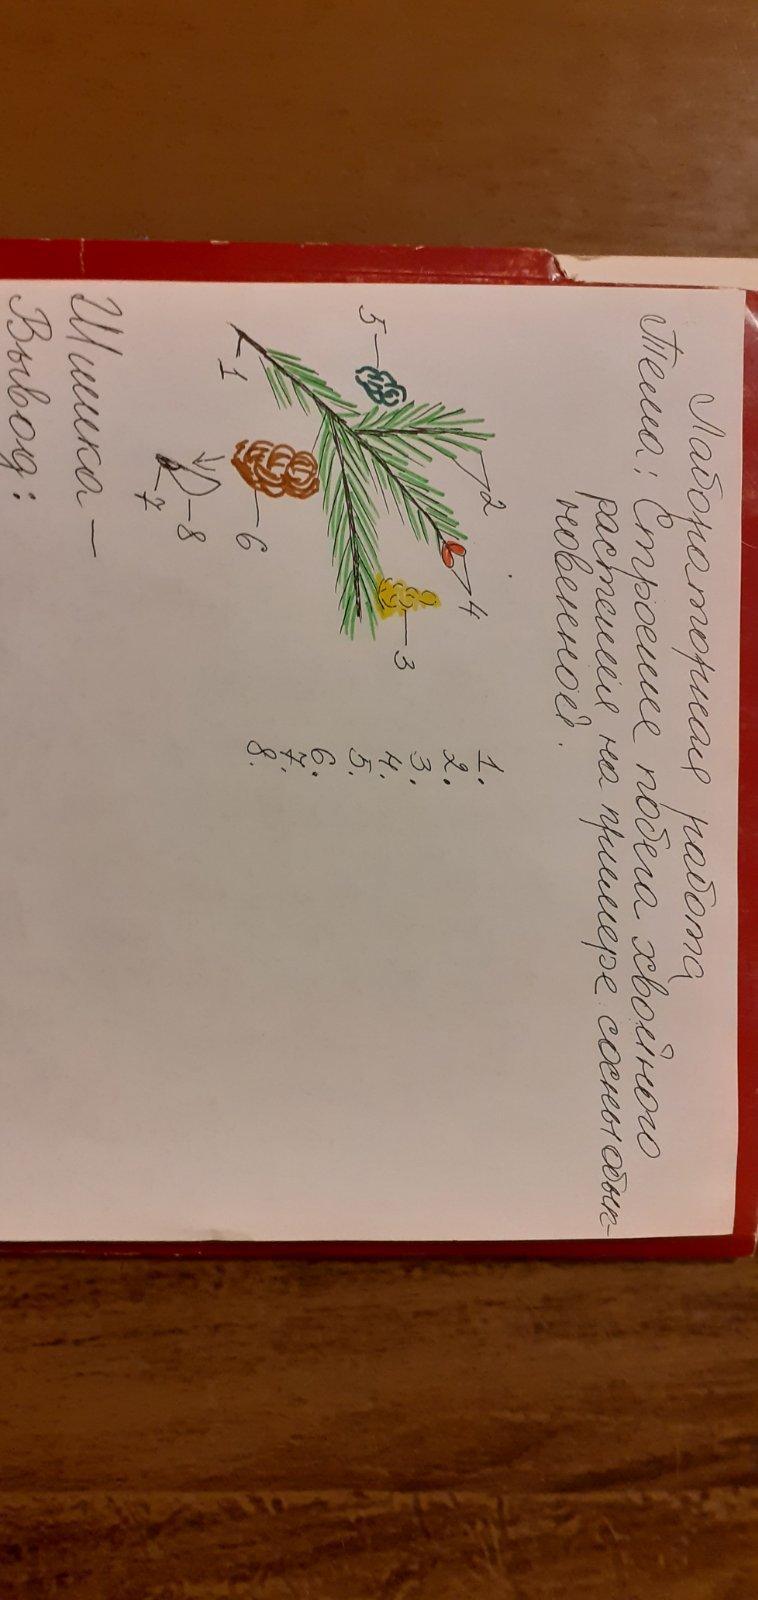 Лабораторная работа
Тема: Строение побега хвойного
растения на примере сосны обык-
новенной.
5
2
4
1
3
6
8
7
1.
2.
3.
4.
5.
6.
7.
8.
Шишка –
Вывод: